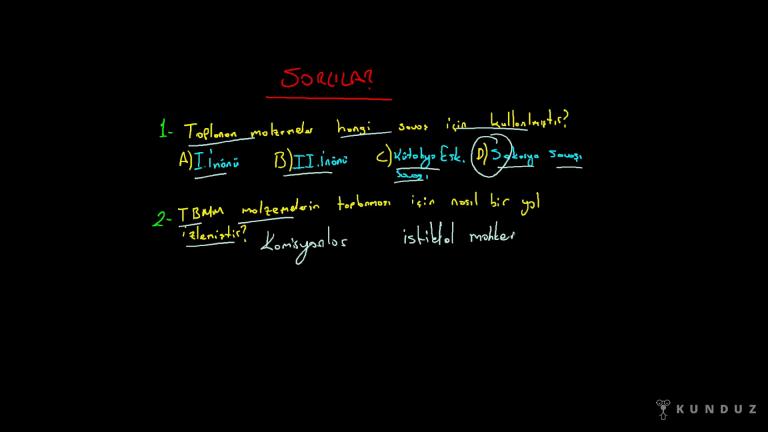 SORULAR?
1- Toplanan malzemeler hangi savaş için kullanılmıştır?
A) I. İnönü B) II. İnönü C) Kütahya Esk. Savaşı D) Sakarya Savaşı
2- TBMM malzemelerin toplanması için nasıl bir yol
izlemiştir? Komisyonlar istiklal mahker
KUNDUZ